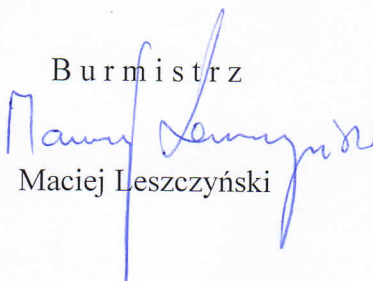 Burmistrz
Maciej Leszczyński
Maciej Leszczyński